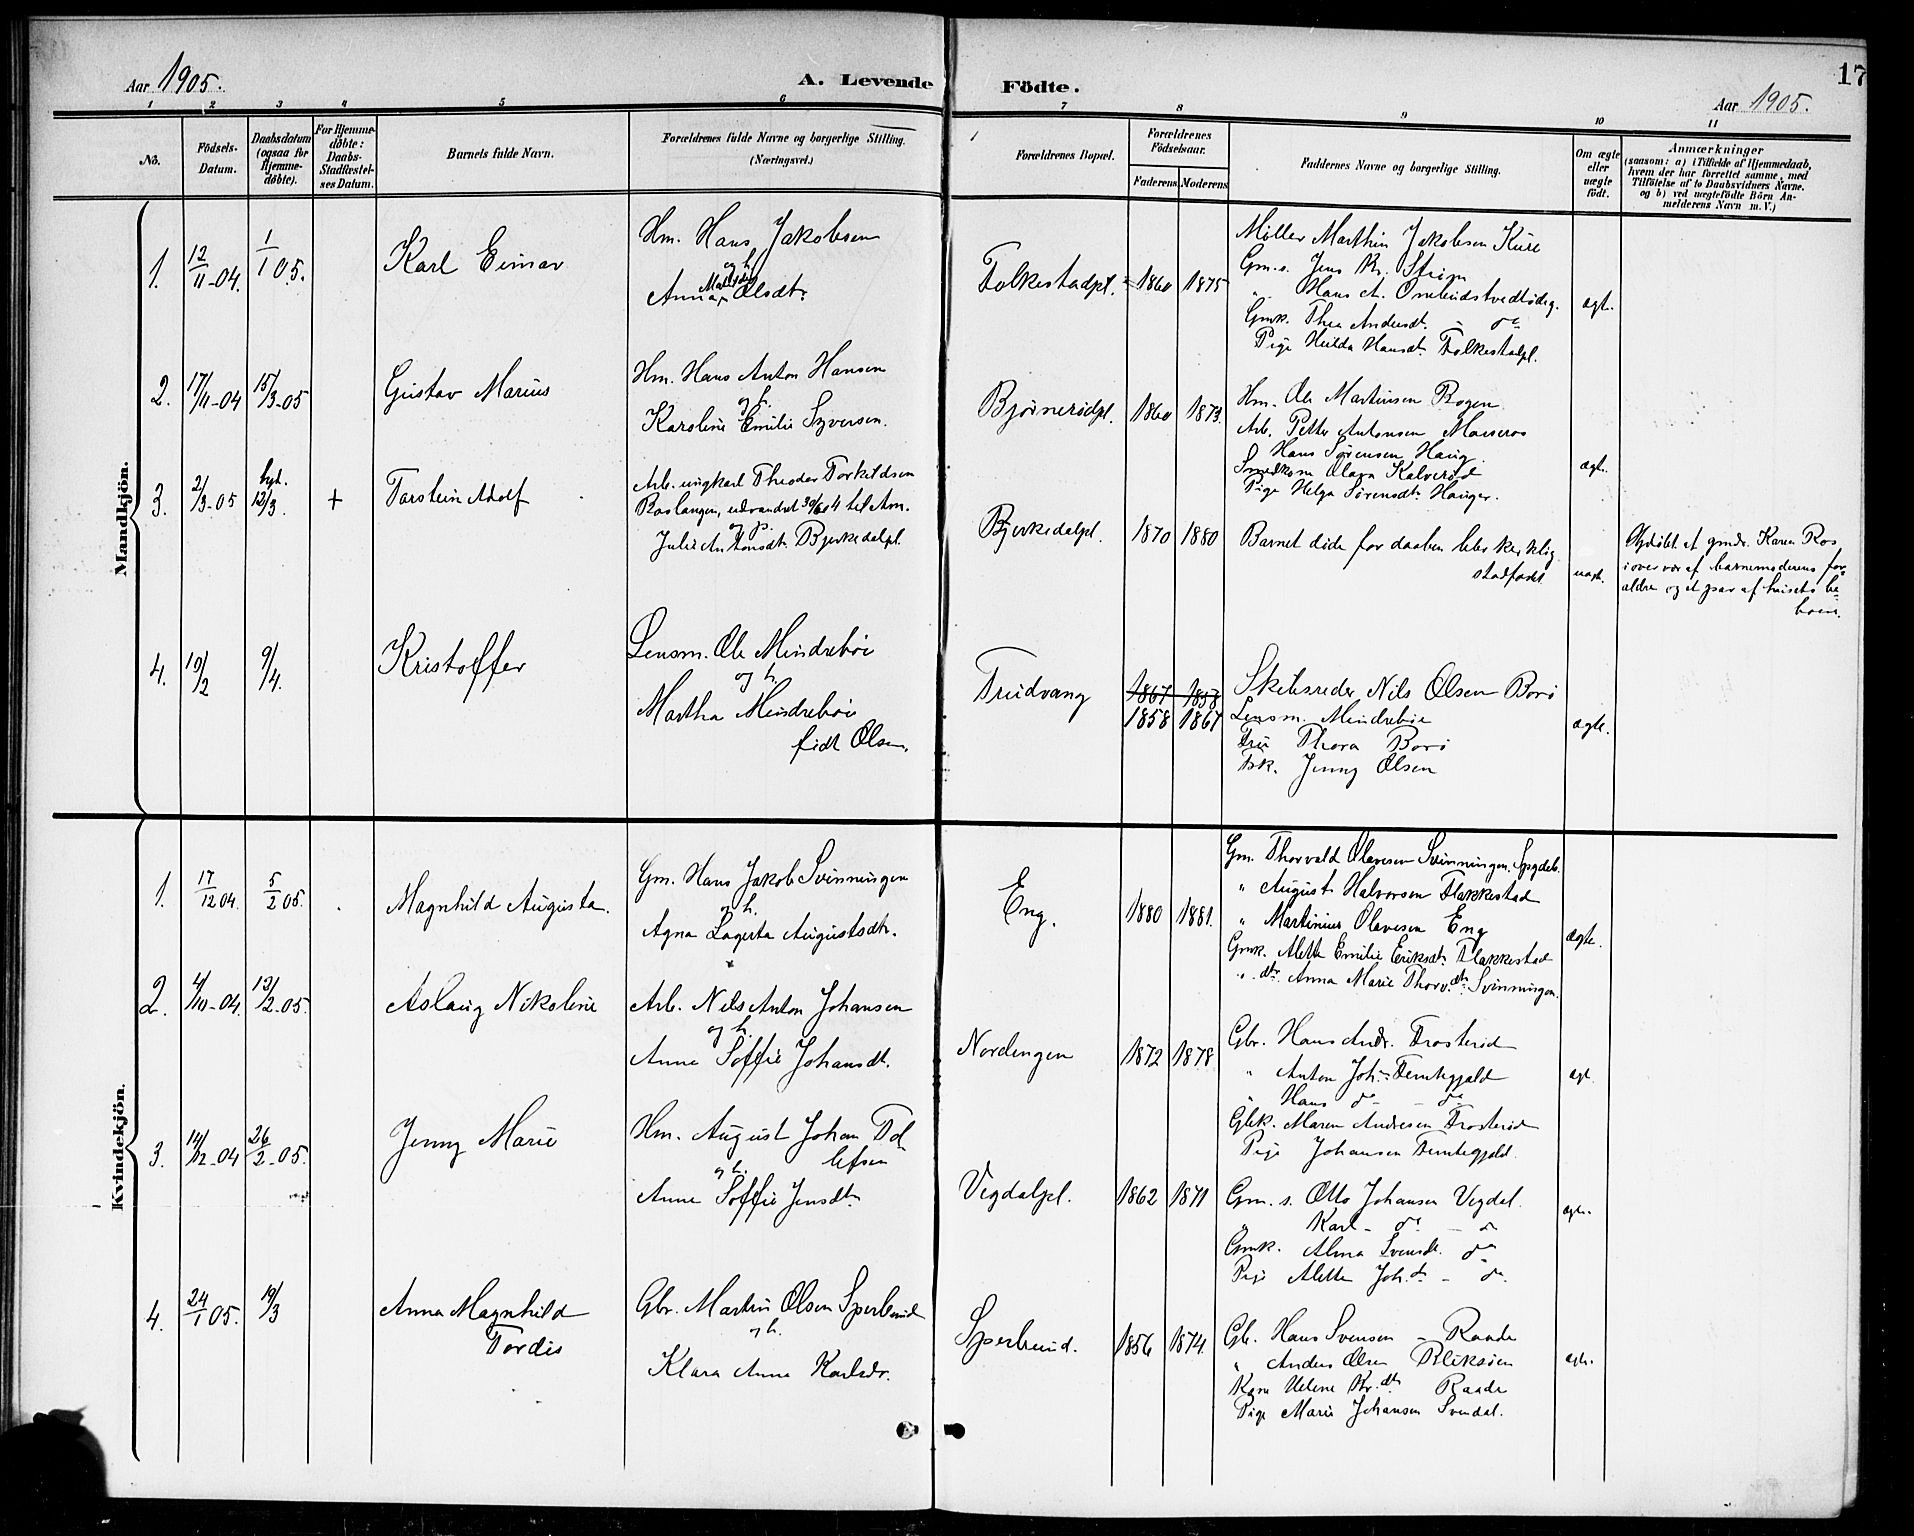 17
Aar 1905.
A. Levende Födte.
Aar 1905.
1 2 3 4 5 6 7 8 9 10 11
No.
Födsels-Datum.
Daabsdatum (ogsaa for Hjemme-døbte).
For Hjemme-døbte: Daabs-Stadfæstel-ses Datum.
Barnets fulde Navn.
Forældrenes fulde Navne og borgerlige Stilling. (Næringsvei.)
Forældrenes Bopæl.
Forældrenes Födselsaar.
Faderens Moderens
Faddernes Navne og borgerlige Stilling.
Om ægte eller uægte født.
Anmærkninger
(saasom: a) i Tilfælde af Hjemmedaab,
hvem der har forrettet samme, med
Tilføielse af to Daabsvidners Navne.
og b) ved uægtefødte Börn An-
melderens Navn m. V.)
Mandkjön.
1. 12/11-04. 1/1 05. Karl Einar
Hm. Hans Jakobsen
og h.
Anna Mathilde Olsdtr.
Folkestadpl. 1860 1875
Møller Marthin Jakobsen Kure
Gm.s. Jens Kr. Strøm
" Hans A.
Gmk. Thea Andersdt. - do
Pige Hulda Hansdt. Folkestadpl.
ægt.
2. 17/11-04 15/3-05 Gustav Marius
Hm. Hans Anton Hansen
og h.
Karoline Emilie Syversen.
Bjørnerødpl. 1860 1873.
Hm. Ole Martinsen Rogen
Arb. Petter Antonsen Moseros
Hans Sørensen Haug.
Smedkone Olava Kalverød
Pige Helga Sørensdt. Hauger.
ægt.
3. 2/3-05 hjd. 12/3. + Torstein Adolf
Arb. ungkarl Theodor Torkildsen
Roslangen, udvandret 30/6 04 til Am.
og p.
Julie Antonsdt. Bjerkedalpl.
Bjerkedalpl. 1870 1880
Barnet døde før daaben blev kirkelig
stadfæst.
uægt.
Hjdøbt af gmdr. Karen Ros
i overvær af barnemoderens for-
ældre og et par af husets be-
boere.
4. 19/2 9/4. Kristoffer
Lensm. Ole Mindrebøe
og h.
Martha Mindrebøe
født Olsen.
Fridvang 1867 1858
1858 1867
Skibsreder Nils Olsen Borø
Lensm. Mindrebøe
Frue Thora Borø
Frk. Jenny Olsen
ægte.
Kvindekjön.
1. 17/12 04. 5/2 05. Magnhild Augusta.
Gm. Hans Jakob Svinningen
og h.
Agna Lagerta Augustsdtr.
Eng. 1880 1881.
Gm. Thorvald Olavesen Svinningen,
" August Halvorsen Flakkestad
" Martinius Olavesen Eng
Gmk. Alette Emilie Eriksdt. Flakkestad
" dtr. Anna Marie Thorv.dt. Svinningen.
ægte.
2. 4/10-04. 12/2-05. Aslaug Nikoline
Arb. Nils Anton Johansen
og h.
Anne Soffie Johansdt.
Nordengen 1872 1878
Gbr. Hans Andr. Frosterød
" Anton Joh. Femtegjeld
" Hans do - do
Gbk. Maren Andresen Frosterød
Pige Johansen Femtegjeld.
ægt.
3. 14/12-04 26/2-05. Jenny Marie
Hm. August Johan Tol
lefsen
og h.
Anne Soffie Jensdt.
Vegdalpl. 1862 1871
Gm. s. Otto Johansen Vegdal.
" Karl - do - do
Gmk. Alma Svensdt. do
Pige Alette Joh.dt - do.
ægte.
4. 24/1 05. 19/3 Anna Magnhild
Tordis
Gbr. Martin Olsen Sperbund
og h.
Klara Anna Karlsdr.
Sperbund. 1856 1874.
Gb. Hans Svensen - Raade
" Anders Olsen Bliksøen
Kone Helene Kr.dt Raade
Pige Marie Johansen Svendal.
ægte.